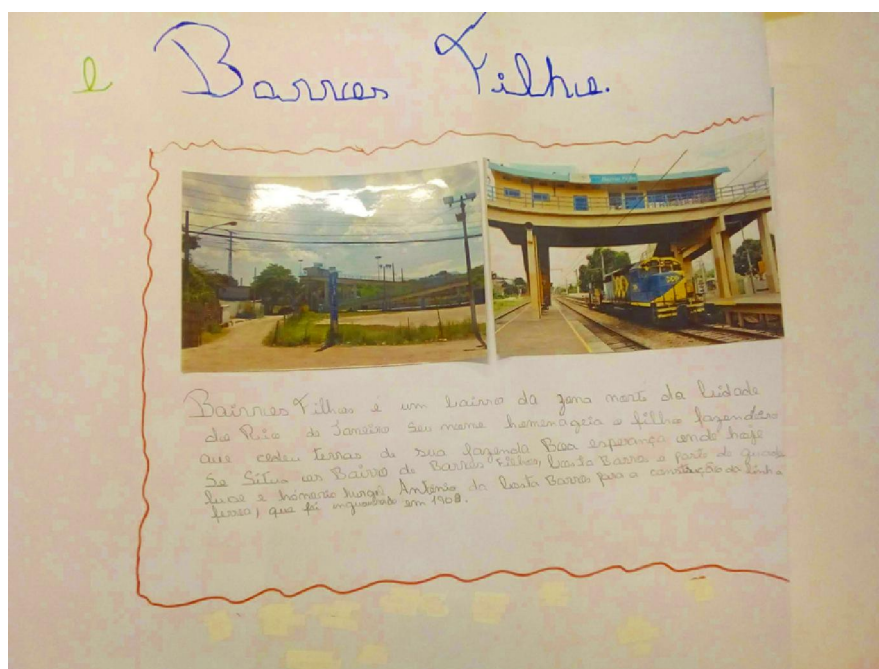 e Barros Filho.
Bairros Filhos é um bairro da zona norte da Cidade
do Rio de Janeiro seu nome homenageia o filho fazendeiro
que cedeu terras de sua fazenda Boa esperança onde hoje
se Situa os Bairro de Barros Filhos, Costa Barros e parte de guada
lupe e honório Gurgel Antônio da Costa Barros para a construção da linha
férrea, que foi inaugurada em 1908.